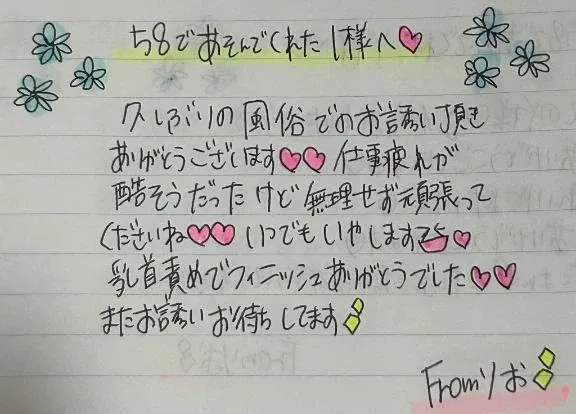 58であそんでくれたI様へ♡
久しぶりの風俗でのお誘い頂き
ありがとうございます♡♡ 仕事疲れが
酷そうだったけど無理せず頑張って
くださいね♡♡ いつでもいやします♡
乳首責めでフィニッシュありがとうでした♡♡
またお誘いお待ちしてます
Fromりお